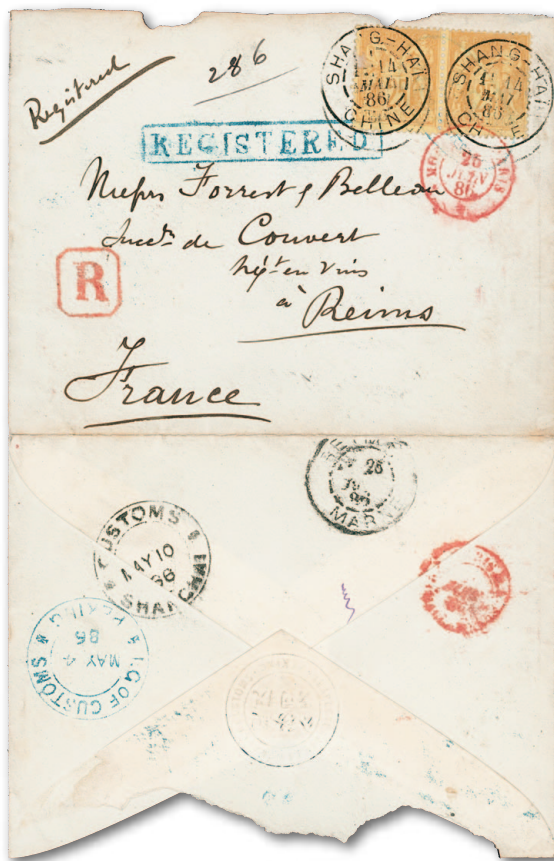 Registered
286
SHANG-HAÏ
14
MAI
86
CHINE
SHANG-HAÏ
14
MAI
86
CHINE
REGISTERED
PARIS
25
JUIN
86
Forrest & Belleau
Succrs de Couvert
Négt en vins
à Reims
R
France
25
86
MARNE
CUSTOMS
MAY 10
86
SHANGHAI
I.G. OF CUSTOMS
MAY 4
86
PEKING